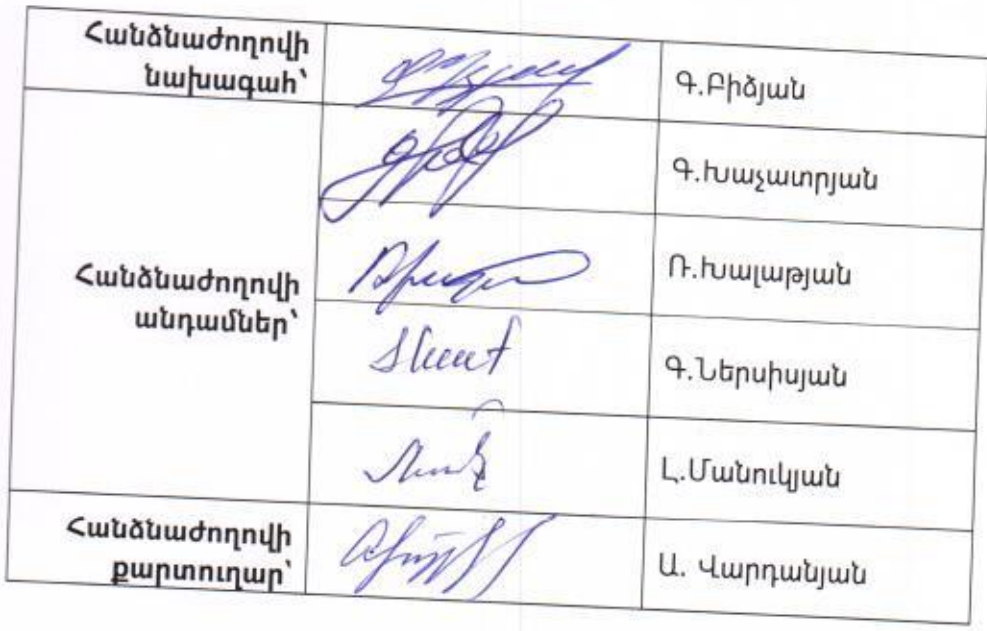 Հանձնաժողովի
նախագահ՝
Գ.Բիձյան
Գ.Խաչատրյան
Հանձնաժողովի
անդամներ՝
Ռ.Խալաթյան
Գ.Ներսիսյան
Լ.Մանուկյան
Հանձնաժողովի
քարտուղար՝
Ա. Վարդանյան